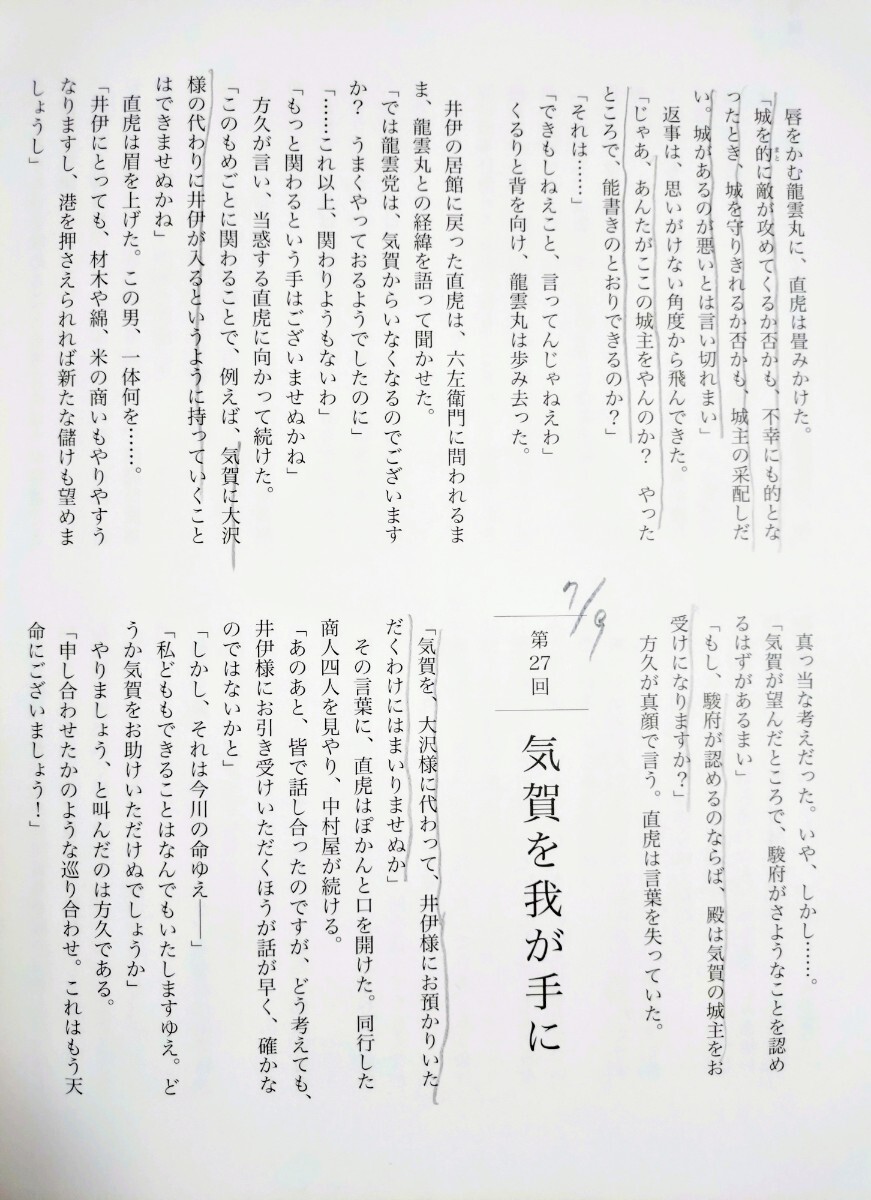 唇をかむ龍雲丸に、直虎は畳みかけた。
「城を的に敵が攻めてくるか否かも、不幸にも的とな
まと
ったとき、城を守りきれるか否かも、城主の采配しだ
い。城があるのが悪いとは言い切れまい」
返事は、思いがけない角度から飛んできた。
「じゃあ、あんたがここの城主をやんのか？　やった
ところで、能書きのとおりできるのか？」
「それは……」
「できもしねえこと、言ってんじゃねえわ」
くるりと背を向け、龍雲丸は歩み去った。
井伊の居館に戻った直虎は、六左衛門に問われるま
ま、龍雲丸との経緯を語って聞かせた。
「では龍雲党は、気賀からいなくなるのでございます
か？　うまくやっておるようでしたのに」
「……これ以上、関わりようもないわ」
「もっと関わるという手はございませぬかね」
方久が言い、当惑する直虎に向かって続けた。
「このもめごとに関わることで、例えば、気賀に大沢
様の代わりに井伊が入るというように持っていくこと
はできませぬかね」
直虎は眉を上げた。この男、一体何を……。
「井伊にとっても、材木や綿、米の商いもやりやすう
なりますし、港を押さえられれば新たな儲けも望めま
しょうし」
真っ当な考えだった。いや、しかし……。
「気賀が望んだところで、駿府がさようなことを認め
るはずがあるまい」
「もし、駿府が認めるのならば、殿は気賀の城主をお
受けになりますか？」
方久が真顔で言う。直虎は言葉を失っていた。
7/9
第27回
気賀を我が手に
「気賀を、大沢様に代わって、井伊様にお預かりいた
だくわけにはまいりませぬか」
その言葉に、直虎はぽかんと口を開けた。同行した
商人四人を見やり、中村屋が続ける。
「あのあと、皆で話し合ったのですが、どう考えても、
井伊様にお引き受けいただくほうが話が早く、確かな
のではないかと」
「しかし、それは今川の命ゆえ――」
「私どももできることはなんでもいたしますゆえ。ど
うか気賀をお助けいただけぬでしょうか」
やりましょう、と叫んだのは方久である。
「申し合わせたかのような巡り合わせ。これはもう天
命にございましょう！」